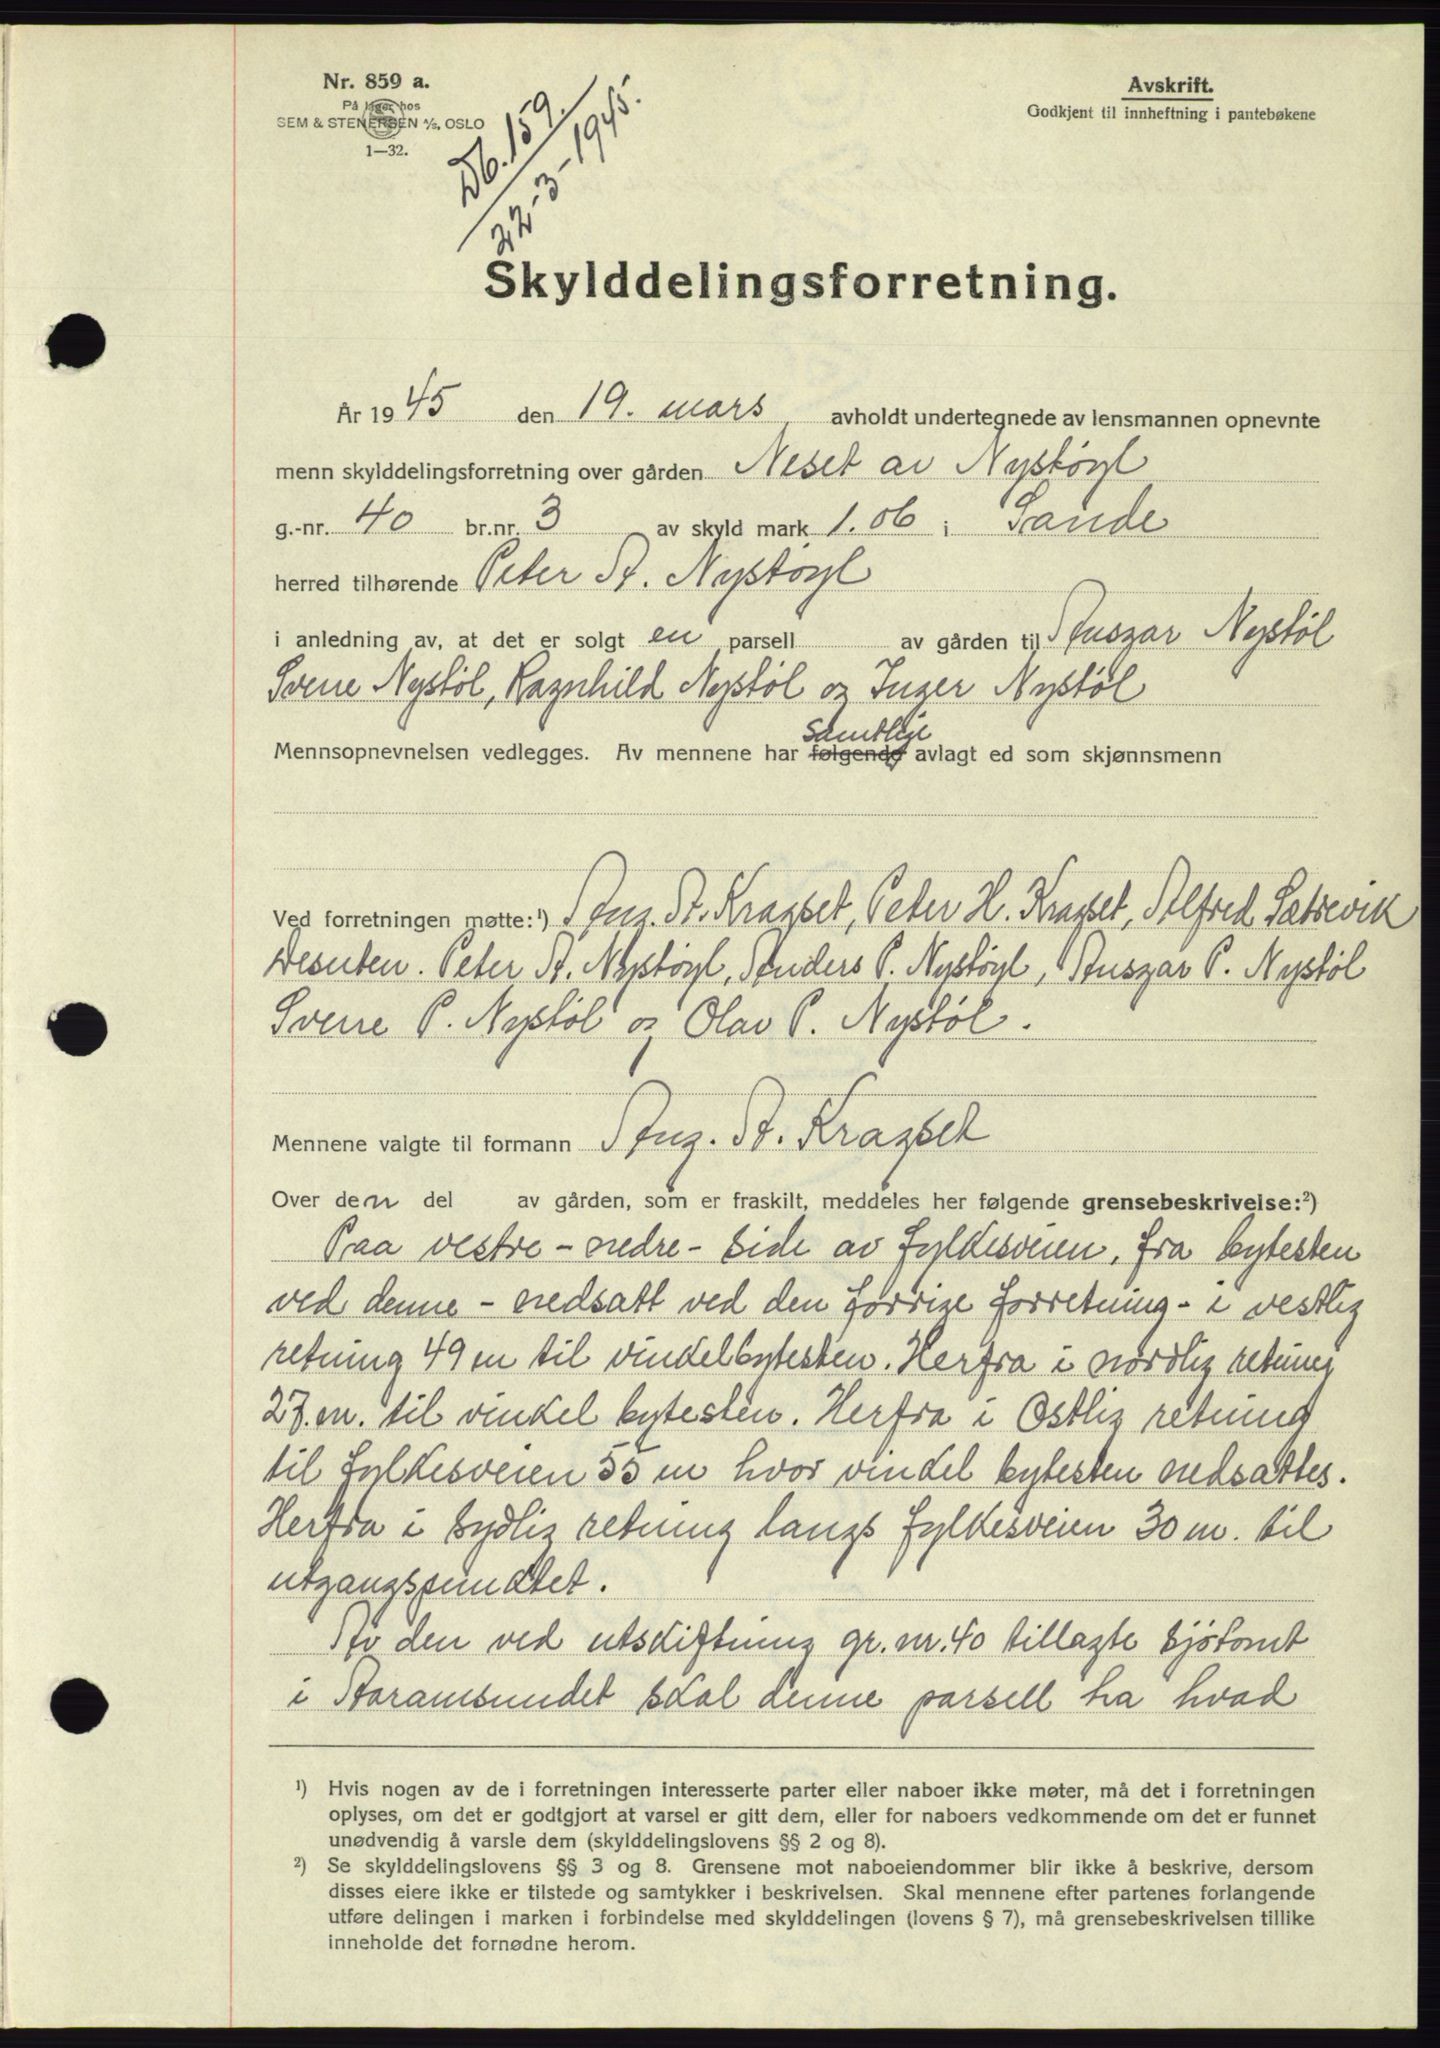 Nr. 859 a.
På lager hos
SEM & STENERSEN A/S, OSLO
1—32.
Db. 159.
22-3-1945.
Avskrift.
Godkjent til innheftning i pantebøkene
Skylddelingsforretning.
År 1945 den 19. mars avholdt undertegnede av lensmannen opnevnte
menn skylddelingsforretning over gården Neset av Nystøyl
g.-nr. 40 br.nr. 3 av skyld mark 1.06 i Sande
herred tilhørende Peter A. Nystøyl
i anledning av, at det er solgt en parsell av gården til Ausgar Nystøl
Sverre Nystøl, Ragnhild Nystøl og Inger Nystøl
Mennsopnevnelsen vedlegges. Av mennene har følgende samtlige avlagt ed som skjønnsmenn
Ved forretningen møtte:¹) Aug. A. Kragset, Peter H. Kragset, Alfred Sætrevik
Desuten. Peter A. Nystøyl, Anders P. Nystøyl, Ausgar P. Nystøl
Sverre P. Nystøl og Olav P. Nystøl.
Mennene valgte til formann Aug. A. Kragset
Over den del av gården, som er fraskilt, meddeles her følgende grensebeskrivelse:²)
Paa vestre - nedre - side av fylkesveien, fra bytesten
ved denne - nedsatt ved den forrige forretning - i vestlig
retning 49 m til vinkelbytesten. Herfra i nordlig retning
27. m. til vinkel bytesten. Herfra i Østlig retning
til fylkesveien 55 m hvor vinkel bytesten nedsattes.
Herfra i sydlig retning langs fylkesveien 30 m. til
utgangspunktet.
Av den ved utskiftning gr. nr. 40 tillagte sjøtomt
i Aaramsundet skal denne parsell ha hvad
¹) Hvis nogen av de i forretningen interesserte parter eller naboer ikke møter, må det i forretningen
oplyses, om det er godtgjort at varsel er gitt dem, eller for naboers vedkommende om det er funnet
unødvendig å varsle dem (skylddelingslovens §§ 2 og 8).
²) Se skylddelingslovens §§ 3 og 8. Grensene mot naboeiendommer blir ikke å beskrive, dersom
disses eiere ikke er tilstede og samtykker i beskrivelsen. Skal mennene efter partenes forlangende
utføre delingen i marken i forbindelse med skylddelingen (lovens § 7), må grensebeskrivelsen tillike
inneholde det fornødne herom.